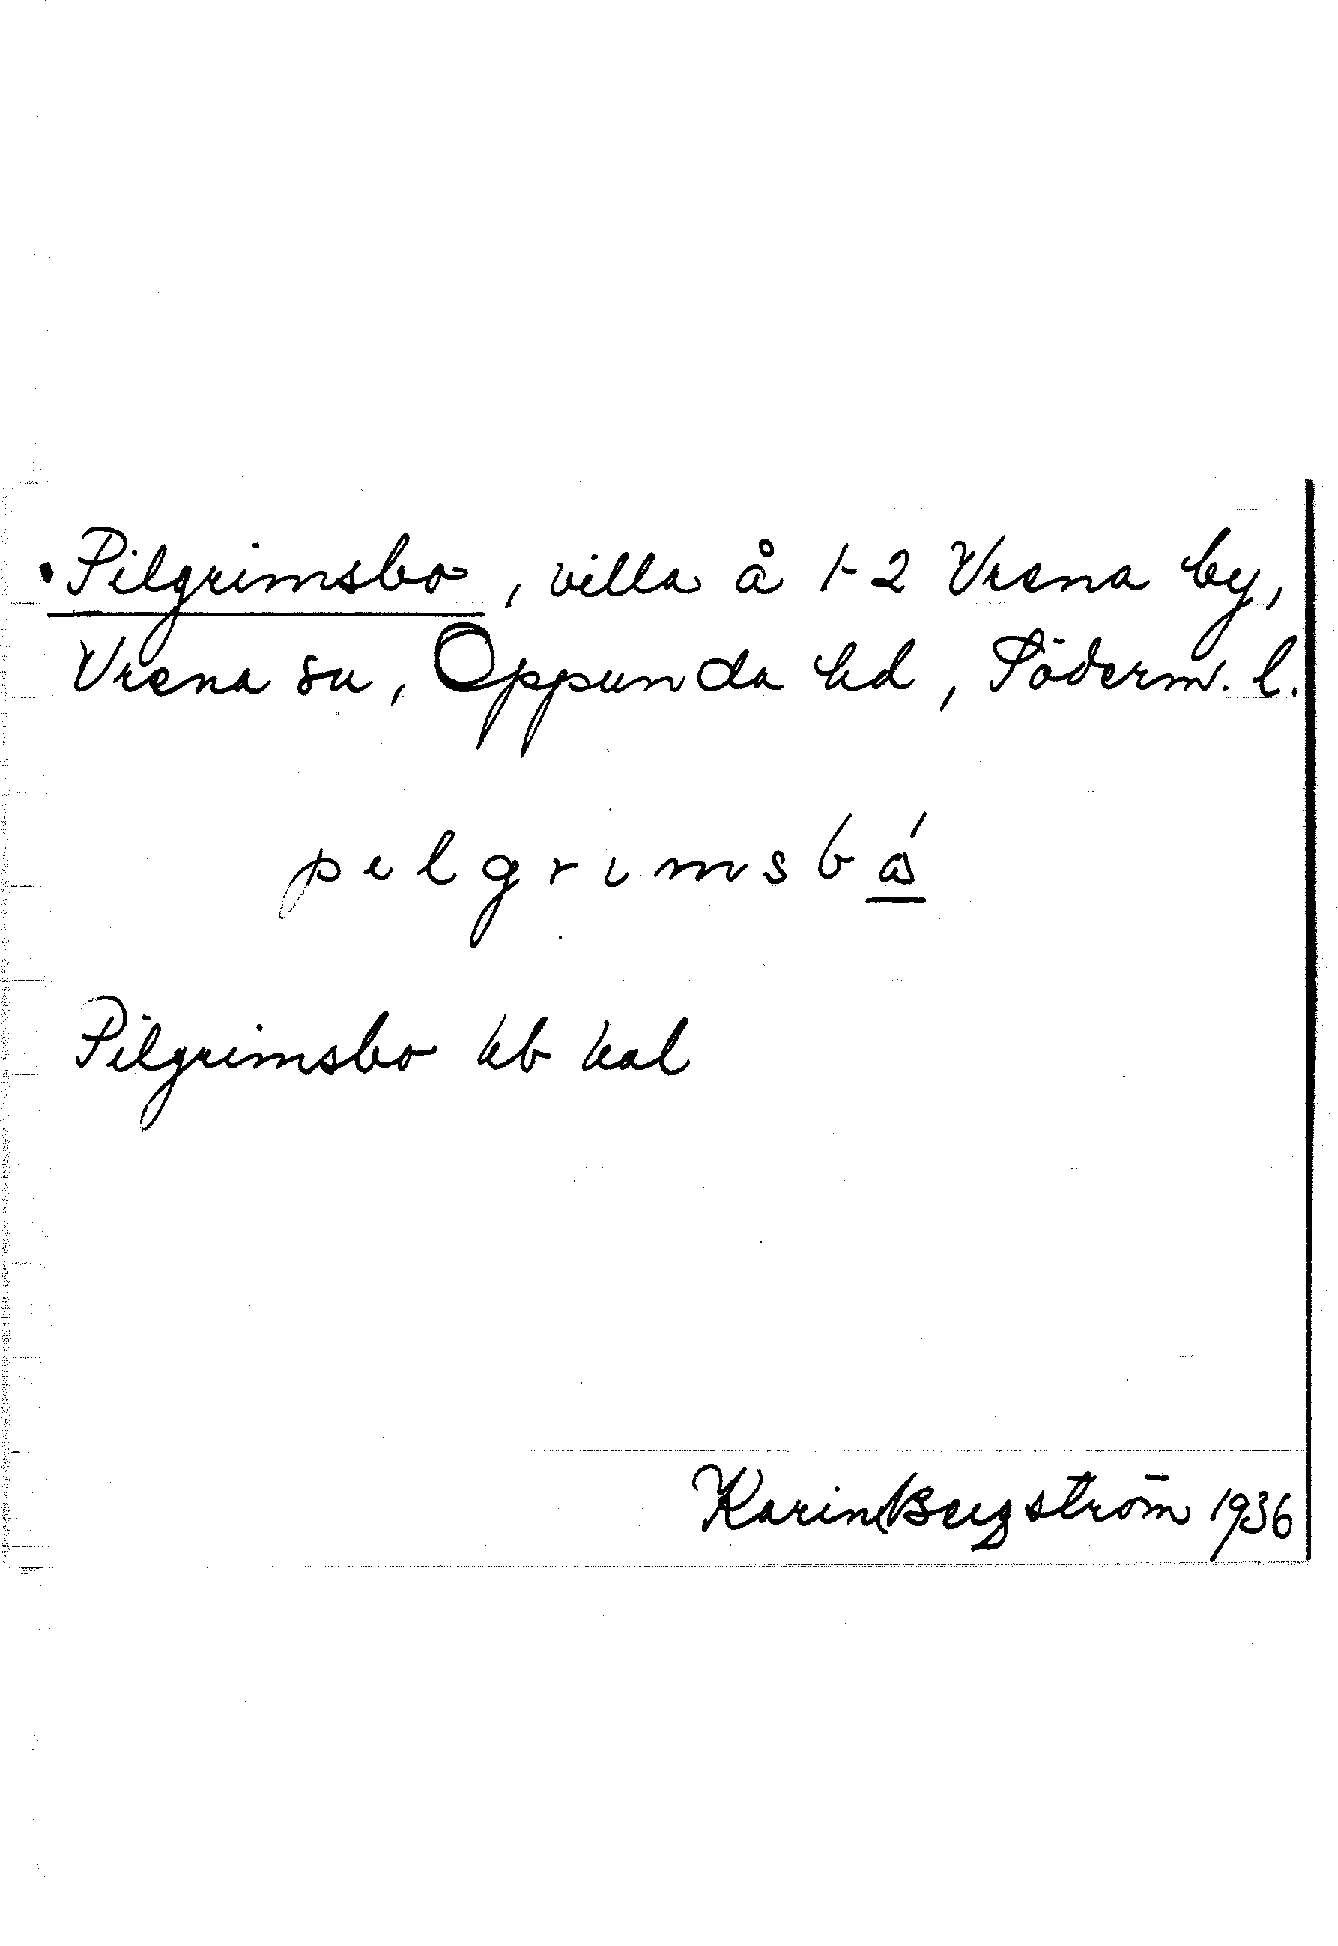 Pilgrimsbo, villa å 1-2 Vrena by,
Vrena sn, Oppunda hd, Söderm. l.
pilgrimsbǻ
Pilgrimsbo kb kal
Karin Bergström 1936